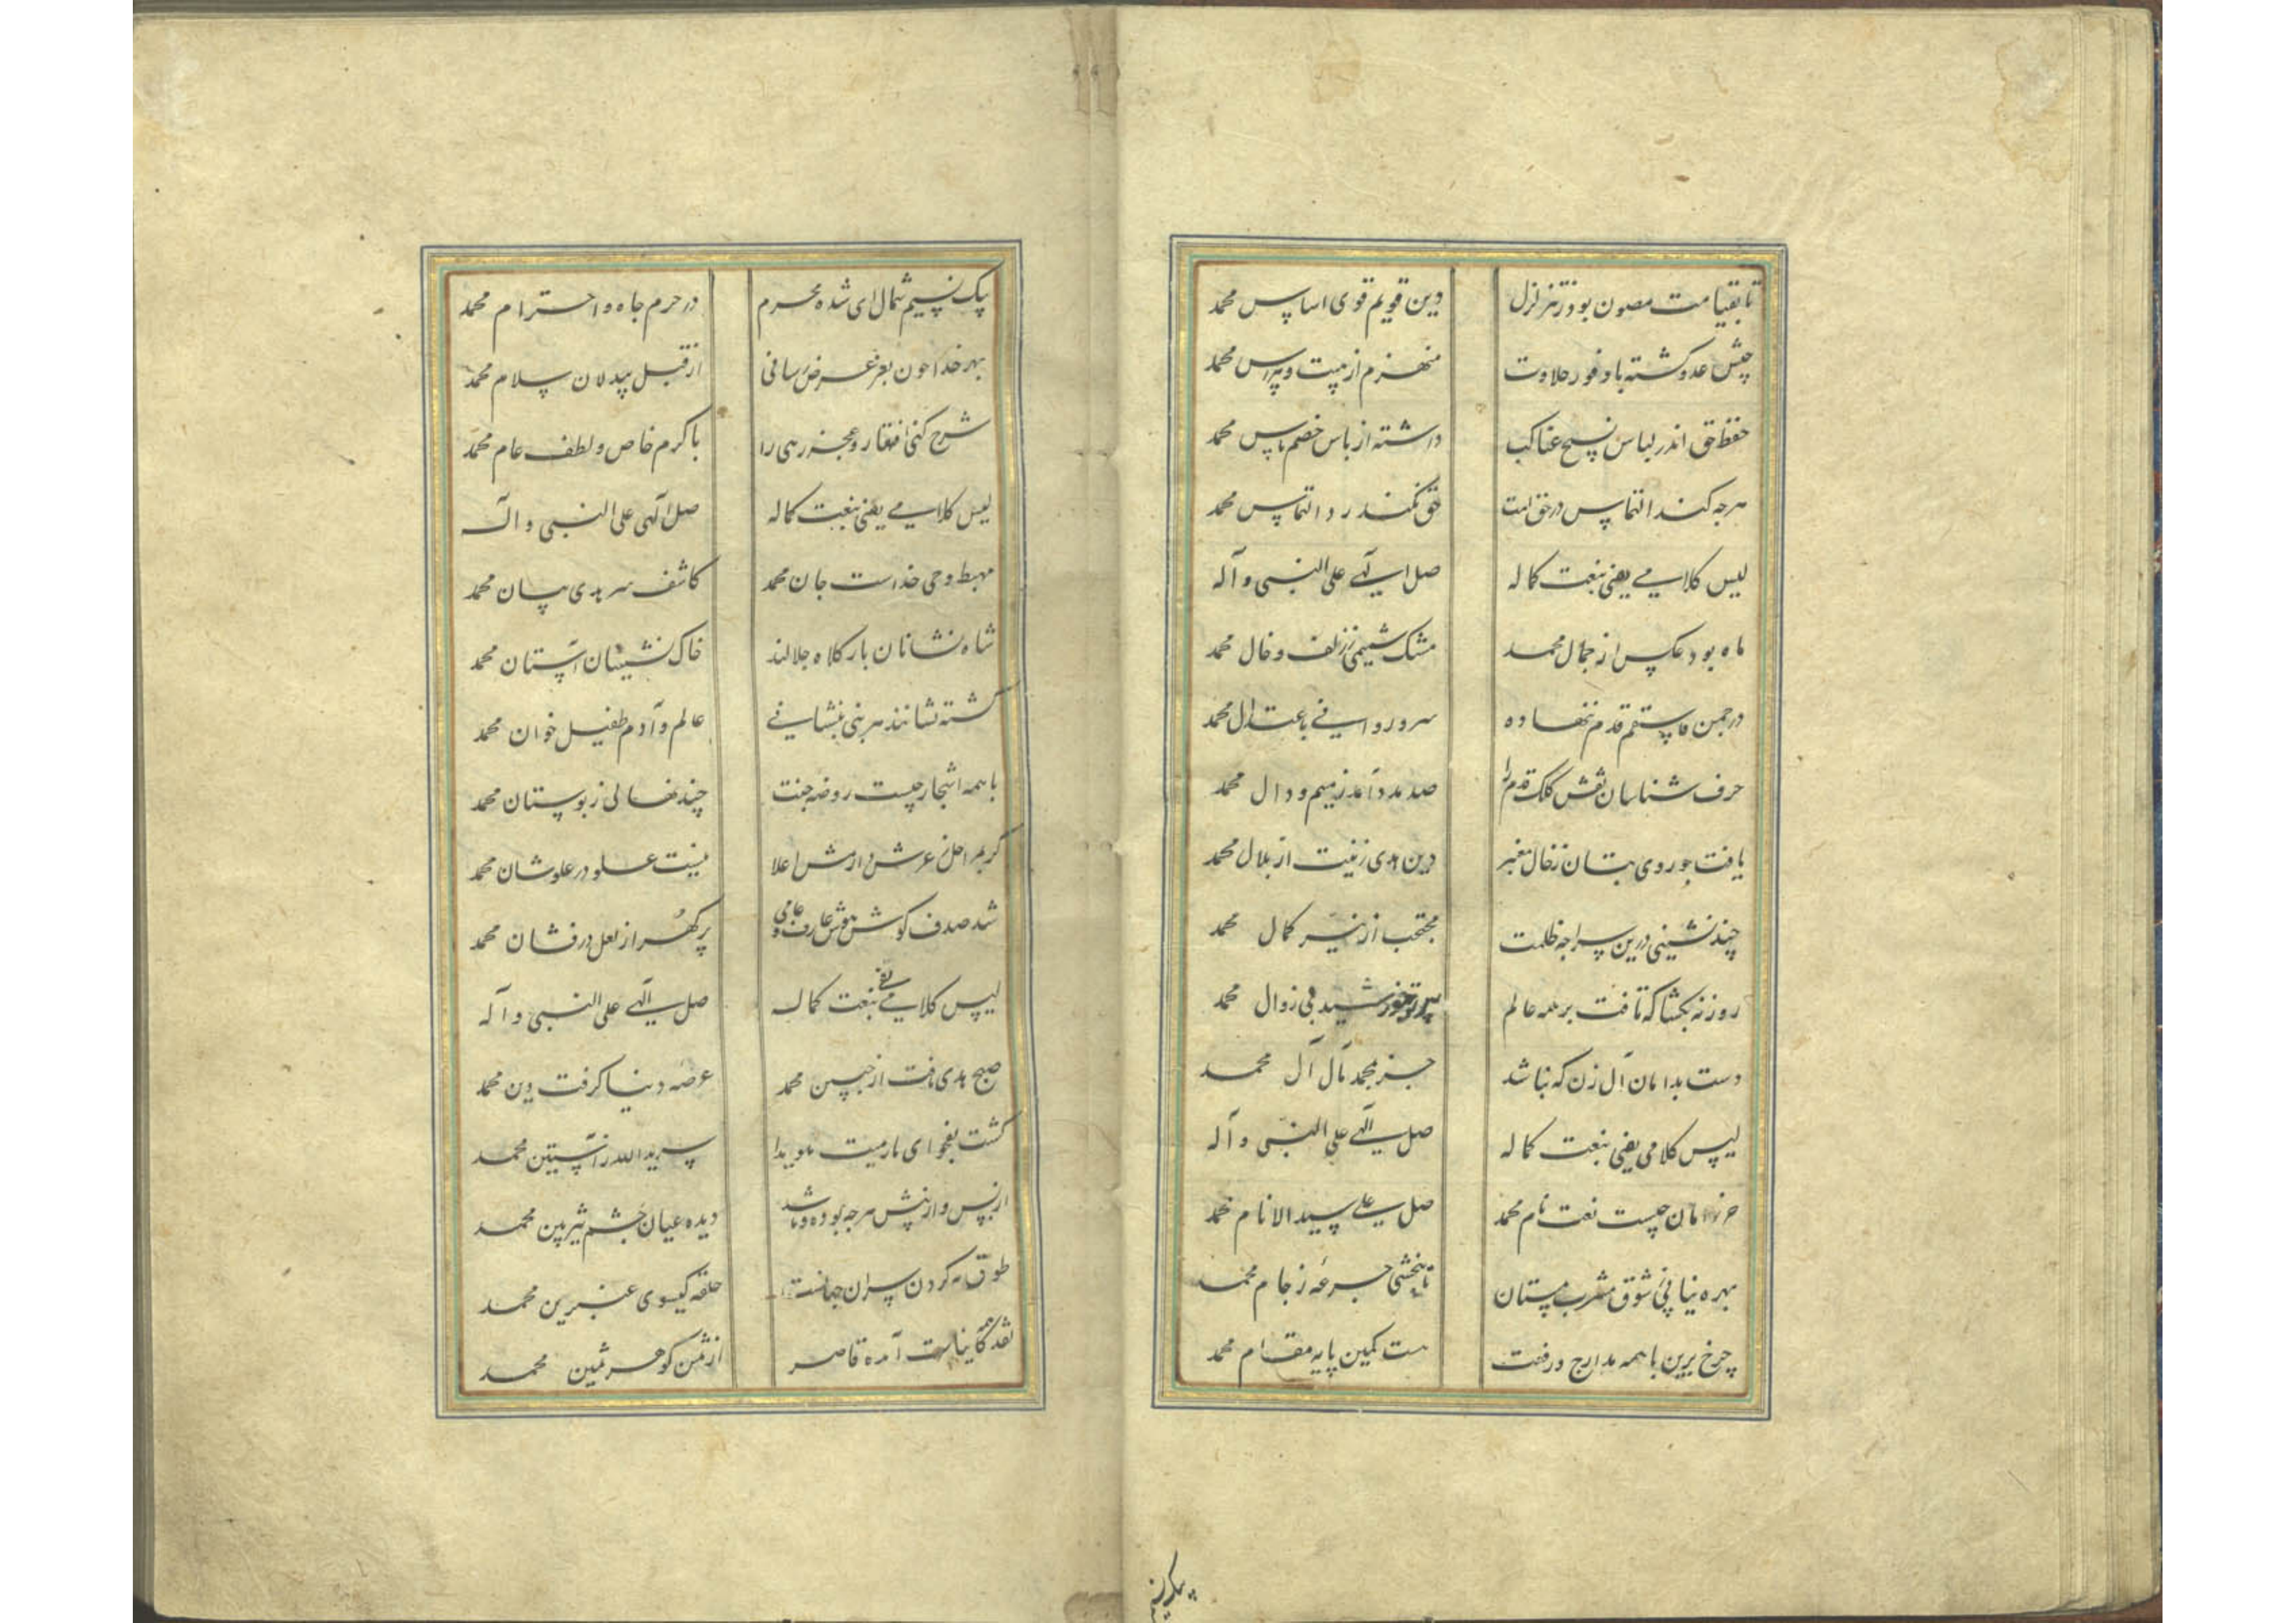 تا بقیامت مصون بود ز تزلزل دین قویم قوی اساس محمد
جیش عدو کشته با وفور حلاوت منهزم از هیبت و هراس محمد
حفظ حق اندر لباس نسج عناکب داشته از باس خصم پاس محمد
هرجه کند التماس در حق امت حق نکند رد التماس محمد
لیس کلامی یفی بنعت کماله صل الهی علی النبی و آله
ماه بود عکسی از جمال محمد مشک شمیمی ز زلف و خال محمد
در جمن فاستقم قدم ننهاده سرو روانی باعتدال محمد
حرف شناسان نقش کلک قدم را صد مدد آمد ز میم و دال محمد
یافت جو روی بتان ز خال معنبر دین هدی زینت از بلال محمد
چند نشینی درین سراجه ظلمت محتجب از نیر کمال محمد
روزنه بکشا که تافت بر همه عالم پرتو خورشید بی زوال محمد
دست بدامان آل زن که نباشد جز بمحمد مآل آل محمد
لیس کلامی یفی بنعت کماله صل الهی علی النبی و آله
حرز امان چیست نعت نام محمد صل علی سید الانام محمد
بهره نیابی ز شوق مشرب مستان تا نچشی جرعه ز جام محمد
چرخ برین با همه مدارج و رفعت هست کمین پایه مقام محمد
پیک نسیم
پیک نسیم شمال ای شده محرم در حرم جاه و احترام محمد
بهر خدا چون بعز عرض رسانی از قبل بیدلان سلام محمد
شرح کنی افتقار و عجز رهی را با کرم خاص و لطف عام محمد
لیس کلامی یفی بنعت کماله صل الهی علی النبی و آله
مهبط وحی خداست جان محمد کاشف سر هدی بیان محمد
شاه نشانان بارکاه جلالند خاک نشینان آستان محمد
کشته نشانند هر نبی بنشانی عالم و آدم طفیل خوان محمد
با همه اشجار چیست روضه جنت چند نهالی ز بوستان محمد
کر بمراحل ز عرش و از مش اعلا نیست علو در علو شان محمد
شد صدف کوش هوش عارف و عامی پر کهر از لعل درفشان محمد
لیس کلامی یفی بنعت کماله صل الهی علی النبی و آله
صبح هدی تافت از جبین محمد عرصه دنیا کرفت دین محمد
کشت بفحوای مارمیت هویدا سر ید الله ز آستین محمد
از پس و از پیش هرجه بوده و باشد دیده عیان چشم تیزبین محمد
طوق نه کردن سران جهانست حلقه کیسوی عنبرین محمد
نقد همه کاینات آمده قاصر از ثمن کوهر ثمین محمد